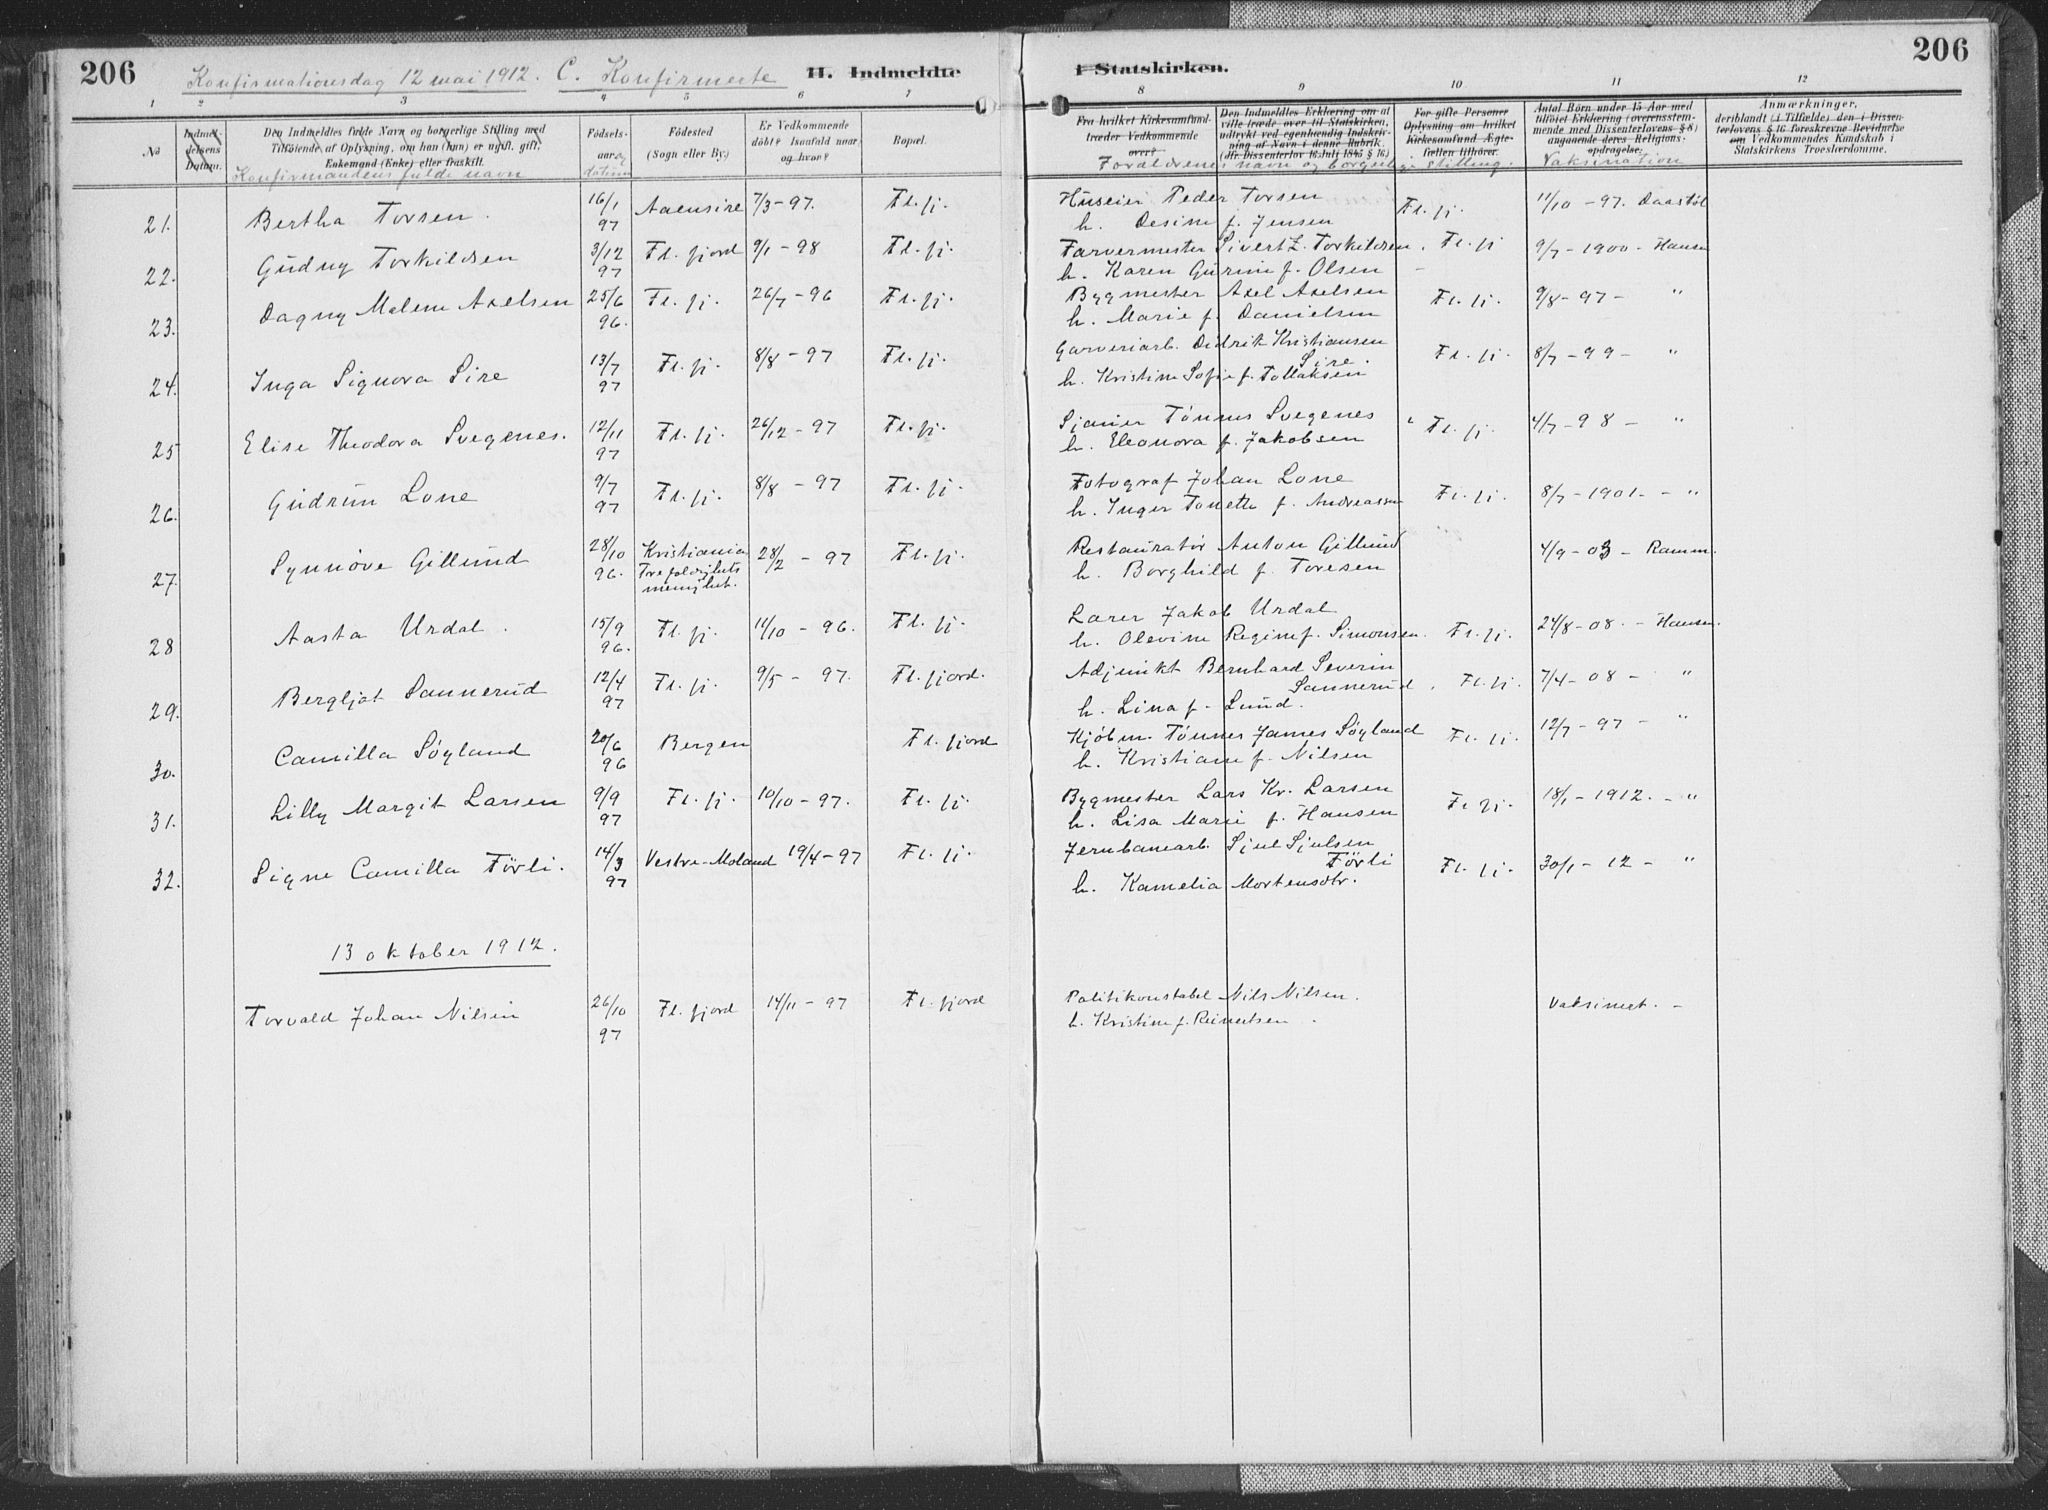 206
Konfirmationsdag 12 mai 1912. C. Konfirmerte
II. Indmeldte
i Statskirken.
206
1 2 3 4 5 6 7 8 9 10 11 12
No
Indmel-
delsens
Datum.
Den Indmeldtes fulde Navn og borgerlige Stilling med
Tilföiende af Oplysning, om han (hun) er ugift, gift,
Enkemand (Enke) eller fraskilt.
Konfirmandens fulde navn
Födsels-
aar og
datum
Födested
(Sogn eller By.)
Er Vedkommende
döbt? Isaafald naar
og hvor?
Bopæl.
Fra hvilket Kirkesamfund
træder Vedkommende
over?
Den Indmeldtes Erklæring om at
ville træde over til Statskirken,
udtrykt ved egenhændig Indskriv-
ning af Navn i denne Rubrik.
(Jfr. Dissenterlov 16 Juli 1845 § 16)
For gifte Personer
Oplysning om hvilket
Kirkesamfund Ægte-
fællen tilhörer.
Forældrenes navn og borgerlig stilling.
Antal Börn under 15 Aar med
tilföiet Erklæring (overensstem-
mende med Dissenterlovens § 8)
angaaende deres Religions-
opdragelse.
Vaksination
Anmærkninger,
deriblandt (i Tilfælde) den i Dissen-
terlovens § 16 foreskrevne Bevidnelse
om Vedkommendes Kundskab i
Statskirkens Troeslærdomme.
21. Bertha Torsen. 16/1 97 Aaensire 7/3-97. Fl.fj. Huseier Peder Torsen Fl.fj. 11/10-97. Daastøl
h. Desine f. Jensen
22. Gudny Torkildsen 3/12 97 Fl.fjord 9/1-98 Fl.fj. Farvermester Sivert Z. Torkildsen. Fl.fj 9/7-1900-Hansen
h. Karen Gurine f. Olsen
23. Dagny Malene Axelsen 25/6 96. Fl.fj. 26/7-96 Fl.fj. Bygmester Axel Axelsen Fl.fj. 9/8-97- "
h. Marie f. Danielsen
24. Inga Signora Sire 13/7 97 Fl.fj. 8/8-97 Fl.fj. Garveriarb. Didrik Kristiansen Fl.fj. 8/7-99- "
Sire.
h. Kristine Sofie f. Tollaksen
25 Elise Theodora Svegenes. 12/11 97 Fl.fj. 26/12-97 Fl.fj. Sjauer Tönnes Svegenes Fl.fj. 4/7-98- "
h. Eleonora f. Jakobsen
26. Gudrun Lone 9/7 97 Fl.fj. 8/8-97 Fl.fj. Fotograf Johan Lone Fl.fj. 8/7-1901.- "
h. Inger Tonette f. Andreassen
27. Synnöve Gillund 28/10 96. Kristiania Trefoldigheds menighet. 28/2-97 Fl.fj. Restauratör Anton Gillund 4/9-03-Ramm.
h. Borghild f. Toresen
28 Aasta Urdal. 15/9 96. Fl.fj. 11/10-96. Fl.fj. Lærer Jakob Urdal
h. Olevine Regine f. Simonsen. Fl.fj. 24/8-08.-Hansen.
29. Bergljot Sannerud 12/4 97 Fl.fj. 9/5-97. Fl.fjord. Adjunkt Bernhard Severin
Sannerud. Fl.fj. 7/4-08- "
h. Lina f. Lund.
30. Camilla Söyland 20/6 96 Bergen Fl.fjord Kjöbm. Tönnes James Söyland Fl.fj. 12/7-97- "
h. Kristiane f. Nilsen
31. Lilly Margit Larsen 9/9 97 Fl.fj. 10/10-97. Fl.fj. Bygmester Lars Kr. Larsen Fl.fj. 18/1-1912.- "
h. Lisa Marie f. Hansen
32. Signe Camilla Törli. 14/3 97 Vestre-Moland 19/4-97 Fl.fj. Jernbanearb. Sjul Sjulsen
Törli Fl.fj. 30/1-12- "
h. Kamelia Mortensdtr.
13 oktober 1912.
Torvald Johan Nilsen 26/10 97 Fl.fjord 14/11-97 Fl.fjord Politikonstabel Nils Nilsen. Vaksinert.-
h. Kristine f. Reinertsen.